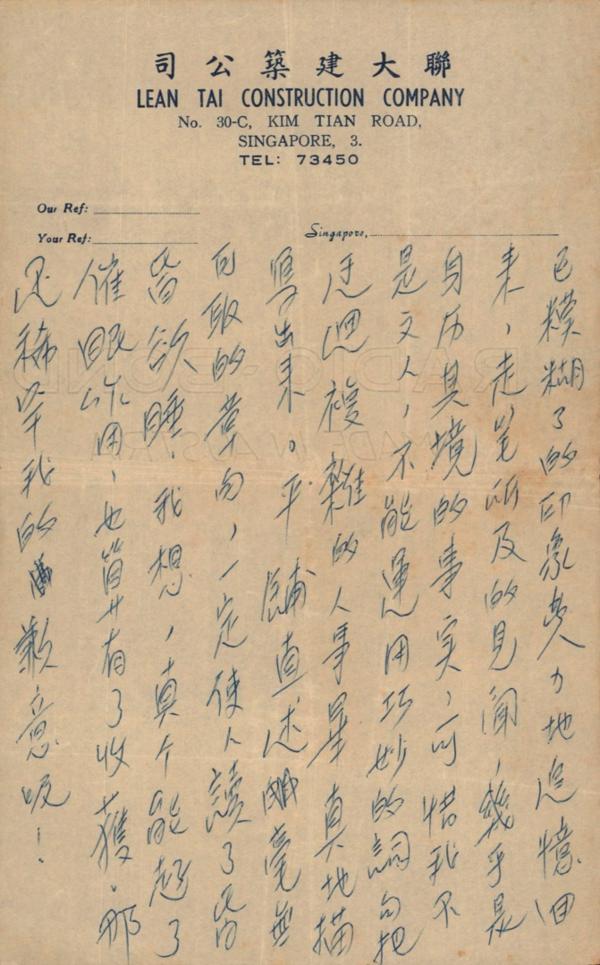 聯大建築公司
LEAN TAI CONSTRUCTION COMPANY
No. 30-C, KIM TIAN ROAD,
SINGAPORE, 3.
TEL: 73450
Our Ref:
Your Ref:
Singapore,
已模糊了的印象力地追憶回
来，走笔所及的見聞，幾乎是
身历其境的事实，可惜我不
是文人，不能運用巧妙的詞句把
迂迴複雜的人事畢真地描
寫出来。平鋪直述毫無
可取的章句，一定使人讀了昏
昏欲睡。我想，真个能起了
催眠作用，也算有了收獲。那
稀罕我的歉意呢！